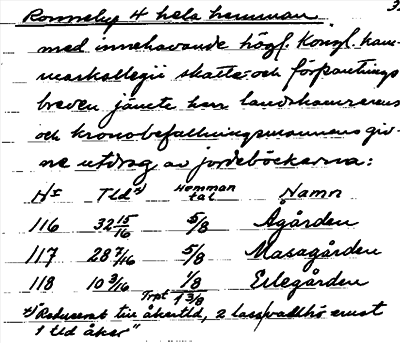 3
Ronneby 4 hela hemman
med innehavande högl. Kongl. kam-
markollegii skatte- och förpantnings
breven jämte herr landskamrerens
och kronobefallningsmannens giv-
ne utdrag av jordeböckerna:
No Tld x) Hemman tal Namn
116 32 15/16 5/8 Ågården
117 28 7/16 5/8 Masagården
118 10 3/16 1/8 Erlegården
Trpt 1 3/8
x) "Reducerat till åkertld, 2 lass vallhö emot
1 tld åker"